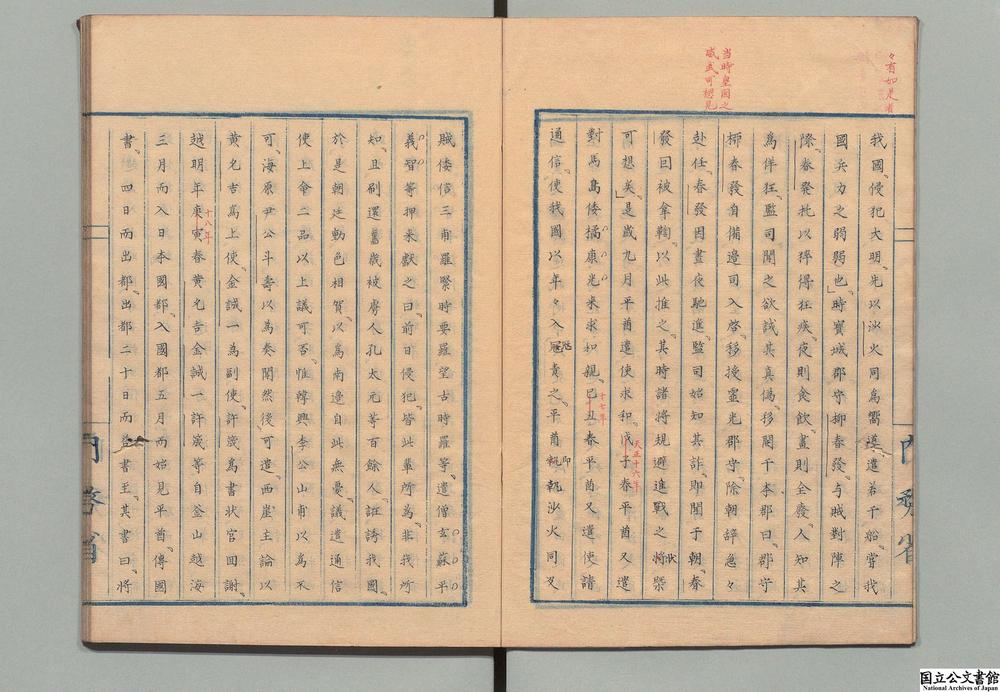 々有如是者
当時皇国之
威武可想見
我國侵犯大明先以沙火同爲嚮導遣若干船嘗我
國兵力之弱弱也時寶城郡守柳春發与賊對陣之
際春發批以猝得狂疾夜則食飲晝則全廢人知其
爲佯狂監司聞之欲試其真偽移関于本郡曰郡守
柳春發自備邊司入啓移授靈光郡守除朝辞急々
赴任春發因晝夜馳進監司始知其詐即聞于朝春
發回被拿鞫以此推之其時諸將規避進戰之將槩
状
可想矣是歲九月平酋遣使求和戊子春平酋又遣
天正十六年
對馬島倭橘康光来求和親己丑春平酋又遣使請
十七年
通信使我國以年々入冦責之平酋執執沙火同又
寇
即
賊倭信三甫羅緊時要羅望古時羅等遣僧玄蘇平
義智等押来獻之曰前日侵犯皆此輩所為非我所
知且刷還舊歲被虜人孔太元等百餘人誑誘我國
於是朝廷動色相賀以為南邊自此無憂議遣通信
使上命二品以上議可否惟樽興李公山甫以為不
可海原尹公斗壽以為奏聞然後可遣西崖主論以
黄允吉爲上使金誠一為副使許筬爲書状官回謝
越明年庚寅春黄允吉金誠一許筬等自釜山越海
十八年
三月而入日本國都入國都五月而始見平酋傳國
書四日而出都出都二十日而答書至其書曰將
国立公文書館
National Archives of Japan